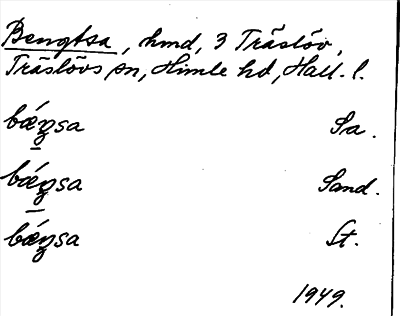 Bengtsa, hmd, 3 Träslöv,
Träslövs sn, Himle hd, Hall. l.
bǽŋsa Sa.
bǽŋsa Sand.
bǽŋsa St.
1949.